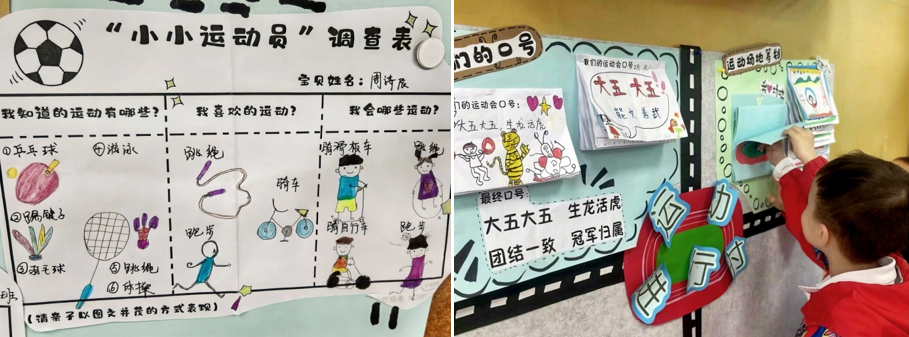 “小小运动员”调查表
宝贝姓名:周诗辰
我知道的运动有哪些?
我喜欢的运动?
我会哪些运动?
①乒乓球
④游泳
②踢毽子
③羽毛球
⑤跳绳
⑥体操
跳绳
骑车
跑步
骑滑板车
跳绳
骑自行车
跑步
(请亲子以图文并茂的方式表现)
班
们的口号
我们的运动会口号:
大五 大五
能文善武
们的运动会口号:
大五大五,生龙活虎
最终口号:
大五大五 生龙活虎
团结一致 冠军归属
运动场地筹划
运动